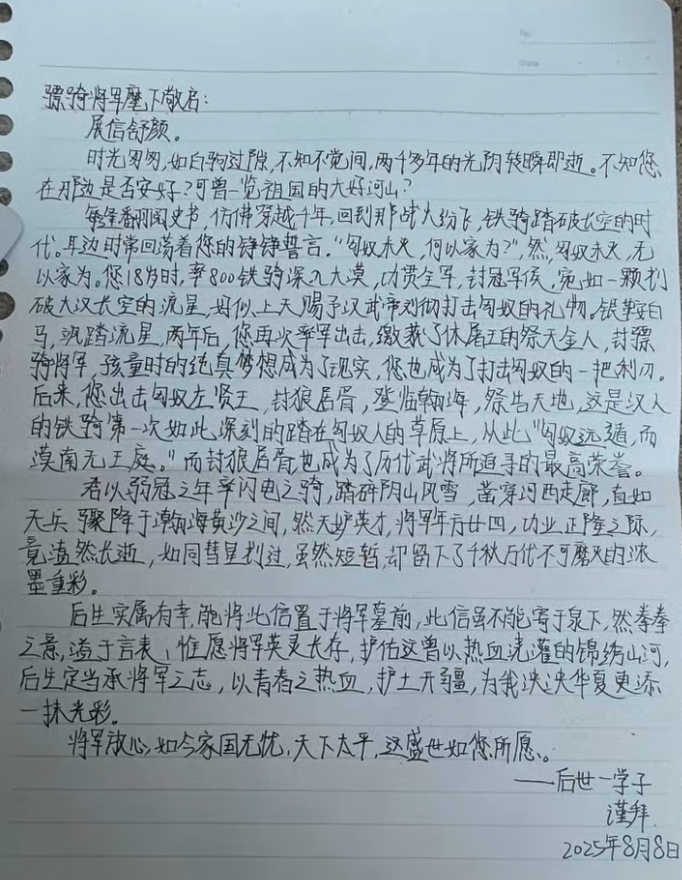 No.
Date
骠骑将军麾下敬启：
展信舒颜。
时光匆匆，如白驹过隙，不知不觉间，两千多年的光阴转瞬即逝。不知您
在那边是否安好？可曾一览祖国的大好河山？
每每翻阅史书，仿佛穿越千年，回到那战火纷飞，铁骑踏破长空的时
代。耳边时常回荡着您的铮铮誓言。“匈奴未灭，何以家为？”然，匈奴未灭，无
以家为。您18岁时，率800铁骑深入大漠，功贯全军，封冠军侯，宛如一颗划
破大汉长空的流星，好似上天赐予汉武帝刘彻打击匈奴的礼物。银鞍白
马，飒踏流星，两年后，您再次率军出击，缴获了休屠王的祭天金人，封骠
骑将军，孩童时的纯真梦想成为了现实，您也成为了打击匈奴的一把利刃。
后来，您出击匈奴左贤王，封狼居胥，登临翰海，祭告天地，这是汉人
的铁骑第一次如此深刻的踏在匈奴人的草原上，从此“匈奴远遁，而
漠南无王庭。”而封狼居胥也成为了历代武将所追寻的最高荣誉。
君以弱冠之年率闪电之骑，踏碎阴山风雪，凿穿河西走廊，直如
天兵骤降于瀚海黄沙之间，然天妒英才，将军年方廿四，功业正隆之际，
竟溘然长逝，如同彗星划过，虽然短暂，却留下了千秋万代不可磨灭的浓
墨重彩。
后生实属有幸，能将此信置于将军墓前，此信虽不能寄于泉下，然拳拳
之意，溢于言表，惟愿将军英灵长存，护佑这曾以热血浇灌的锦绣山河，
后生定当承将军之志，以青春之热血，护土开疆，为我泱泱华夏更添
一抹光彩。
将军放心，如今家国无忧，天下太平，这盛世如您所愿。
——后世一学子
谨拜
2025年8月8日